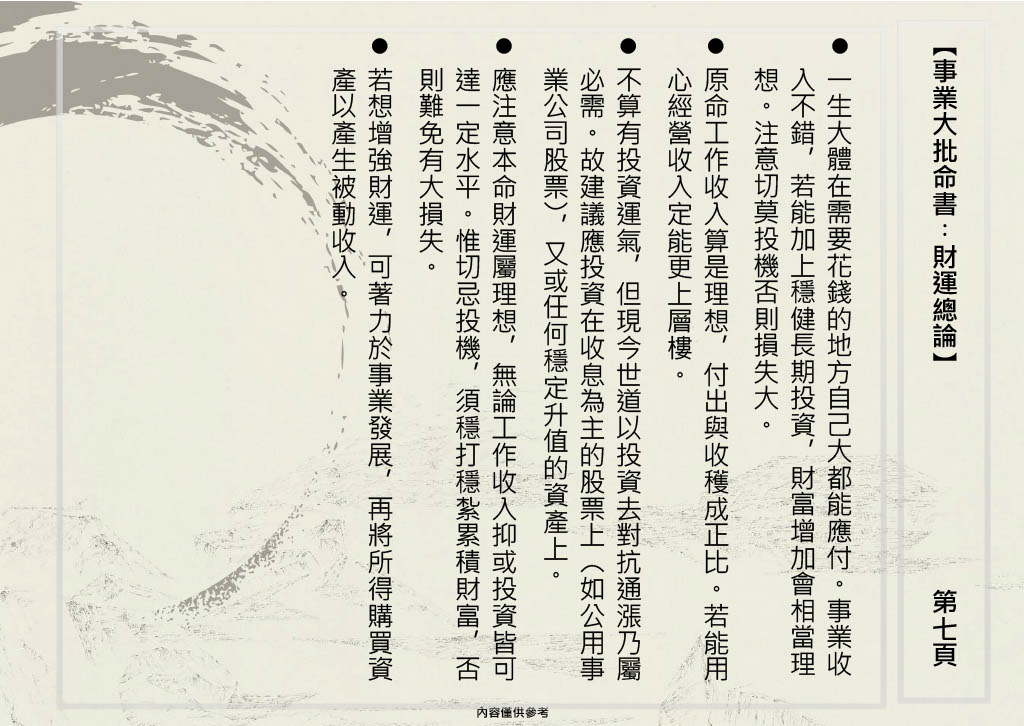 【事業大批命書：財運總論】
第七頁
● 一生大體在需要花錢的地方自己大都能應付。事業收
入不錯，若能加上穩健長期投資，財富增加會相當理
想。注意切莫投機否則損失大。
● 原命工作收入算是理想，付出與收穫成正比。若能用
心經營收入定能更上層樓。
● 不算有投資運氣，但現今世道以投資去對抗通漲乃屬
必需。故建議應投資在收息為主的股票上（如公用事
業公司股票），又或任何穩定升值的資產上。
● 應注意本命財運屬理想，無論工作收入抑或投資皆可
達一定水平。惟切忌投機，須穩打穩紮累積財富，否
則難免有大損失。
● 若想增強財運，可著力於事業發展，再將所得購買資
產以產生被動收入。
內容僅供參考